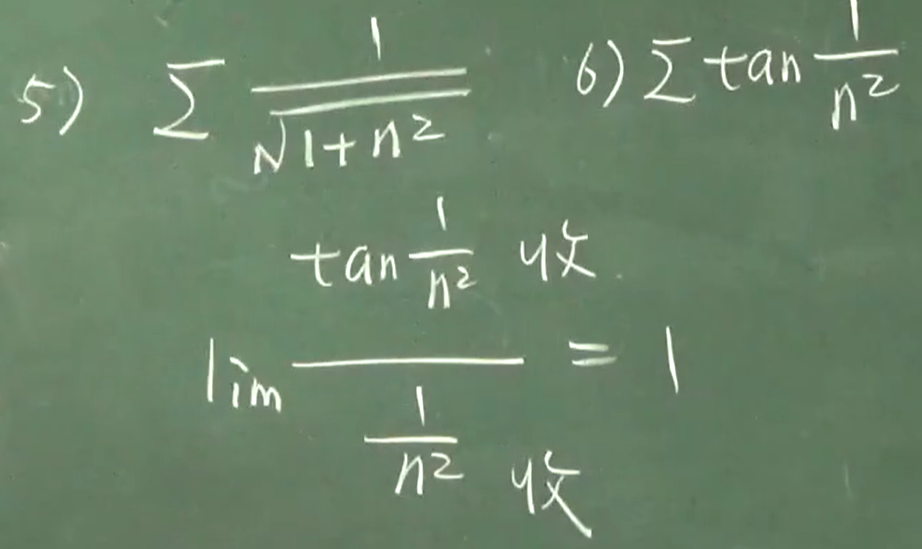 5) ∑ 1/√(1+n²) 6) ∑ tan 1/n²
lim (tan 1/n² 收)/(1/n² 收) = 1